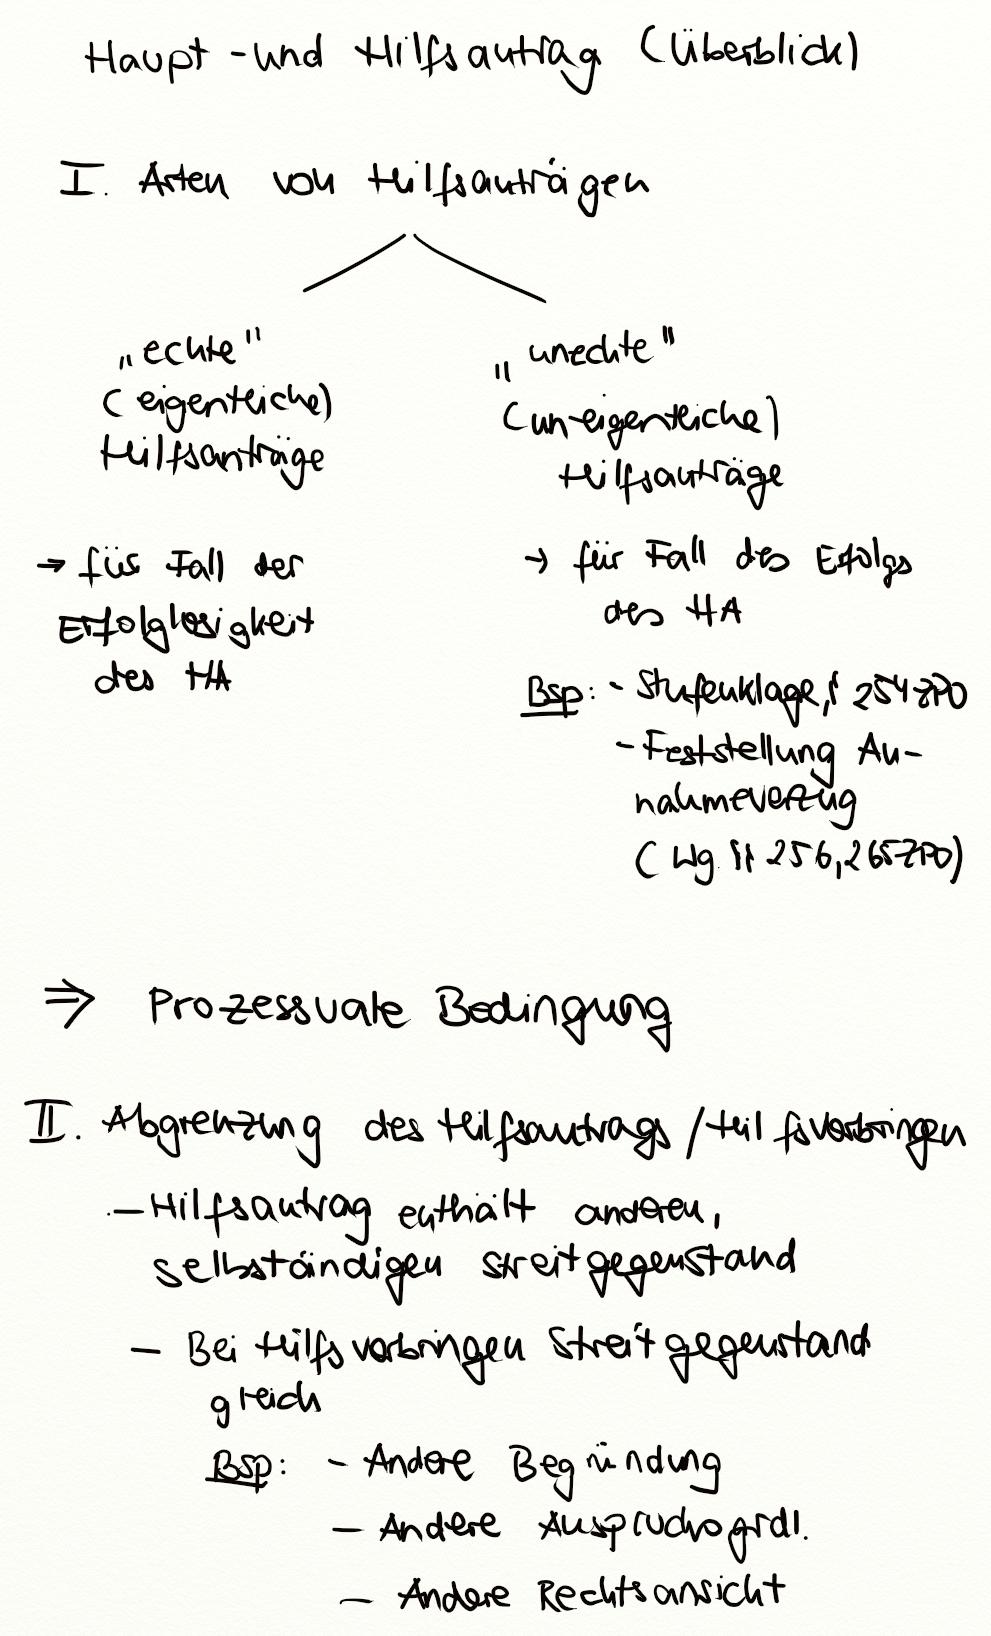 Haupt- und Hilfsantrag (Überblick)
I. Arten von Hilfsanträgen
„echte"
(eigentliche)
Hilfsanträge
→ für Fall der
Erfolglosigkeit
des HA
„unechte"
(uneigentliche)
Hilfsanträge
→ für Fall des Erfolgs
des HA
Bsp: - Stufenklage, § 254 ZPO
- Feststellung An-
nahmeverzug
(wg. §§ 256, 265 ZPO)
⇒ Prozessuale Bedingung
II. Abgrenzung des Hilfsantrags / Hilfsvorbringen
- Hilfsantrag enthält anderen,
selbständigen Streitgegenstand
- Bei Hilfsvorbringen Streitgegenstand
gleich
Bsp: - Andere Begründung
- Andere Anspruchsgrdl.
- Andere Rechtsansicht